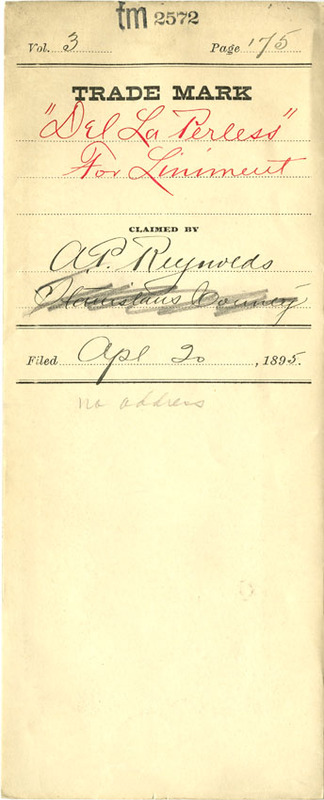 tm 2572
Vol. 3 Page 175
TRADE MARK
"Del La Perless"
For Liniment
CLAIMED BY
A.P. Reynolds
Stanislaus County
Filed Apl 20, 1895.
no address